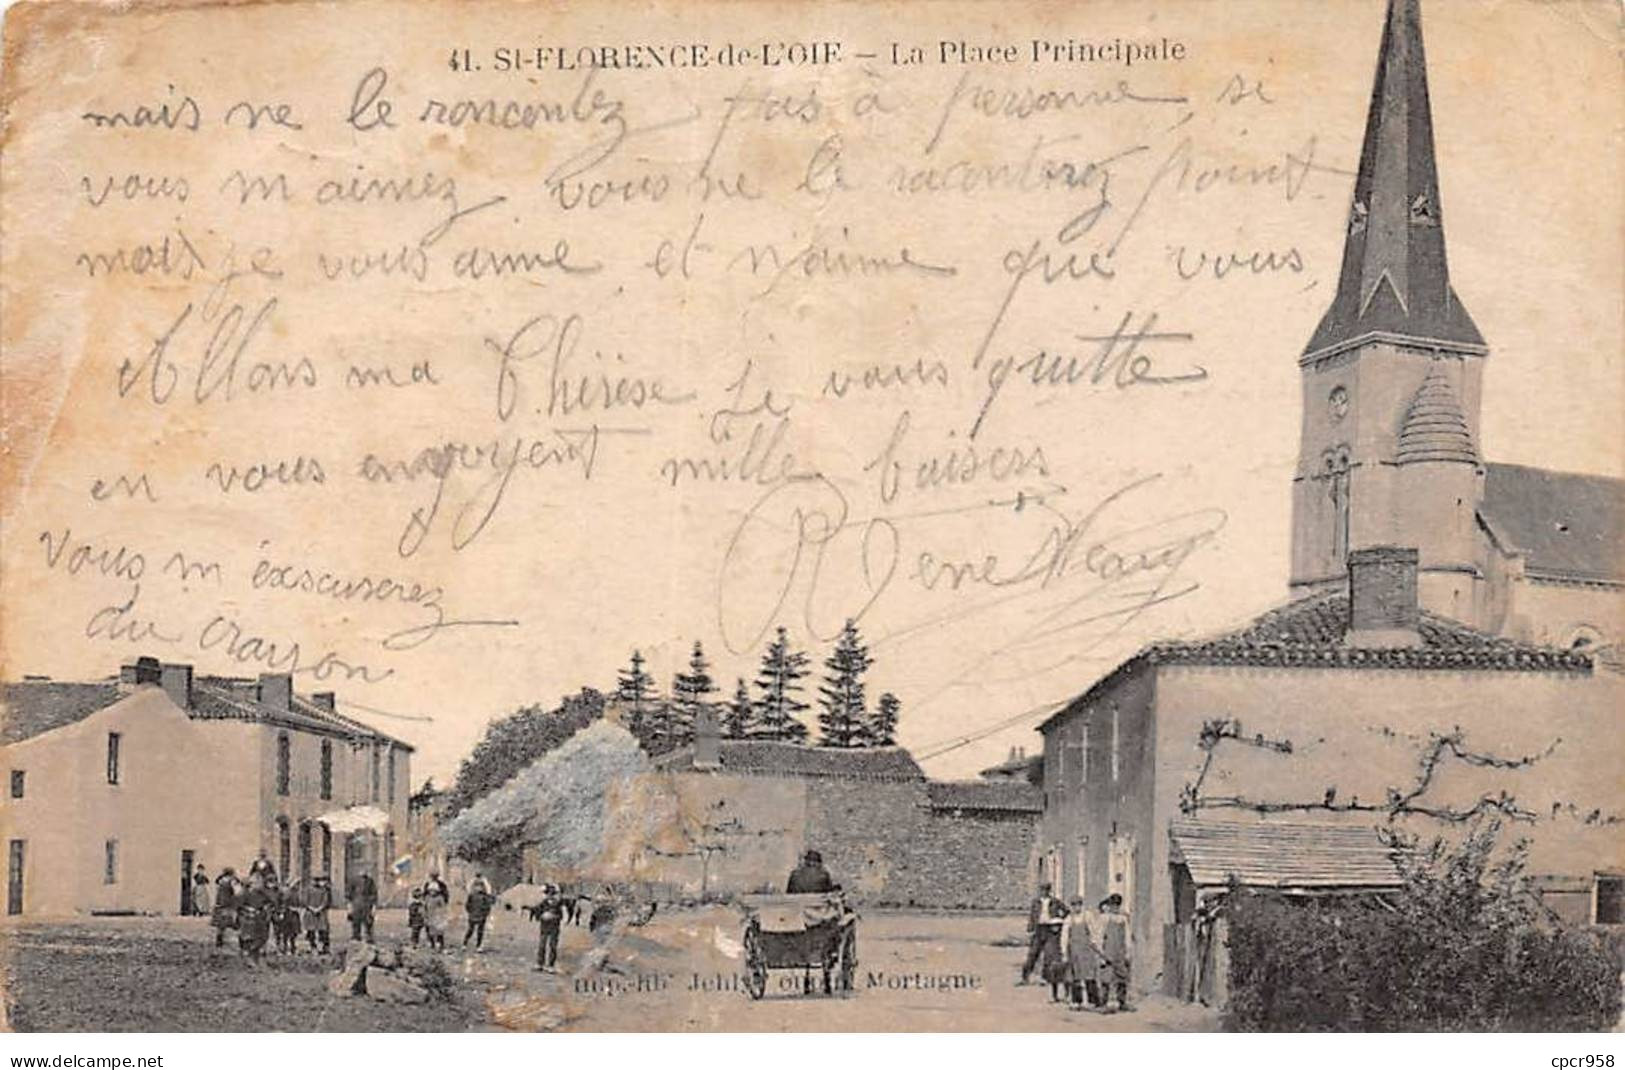 41. St-FLORENCE-de-L'OIE — La Place Principale
mais ne le roncontez pas à personne si
vous m'aimez vous ne le raconterez point
mais je vous aime et n'aime que vous
Allons ma Thérèse je vous quitte
en vous envoyent mille baisers
René
Vous m'éxscuserez
du crayon
Imp.-lib Jehly Mortagne
www.delcampe.net
cpcr958